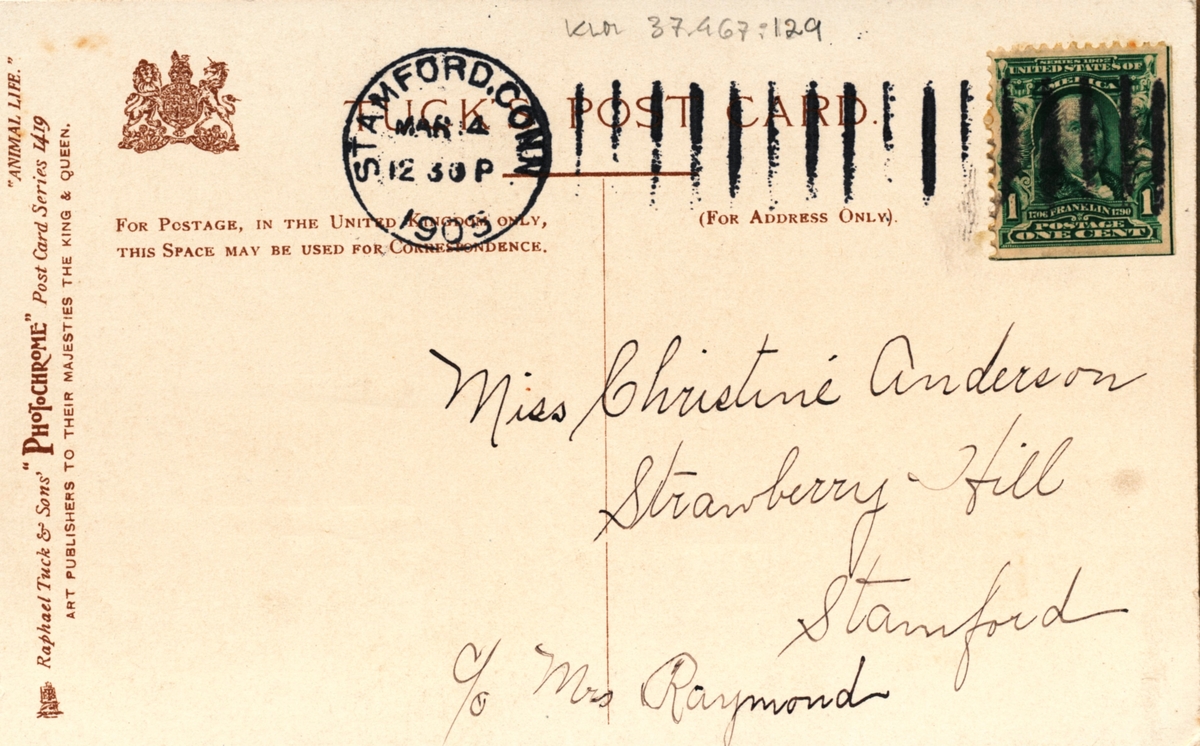 KLM 37.467:129
"ANIMAL LIFE."
Raphael Tuck & Sons' "PHOTOCHROME" Post Card Series 1419
ART PUBLISHERS TO THEIR MAJESTIES THE KING & QUEEN.
TUCK'S POST CARD.
STAMFORD, CONN
MAR 4
12 30 P
1905
FOR POSTAGE, IN THE UNITED KINGDOM ONLY,
THIS SPACE MAY BE USED FOR CORRESPONDENCE.
(FOR ADDRESS ONLY).
SERIES 1902
UNITED STATES OF
AMERICA
1 1706 FRANKLIN 1790 1
POSTAGE
ONE CENT
Miss Christine Anderson
Strawberry Hill
Stamford
c/o Mrs Raymond